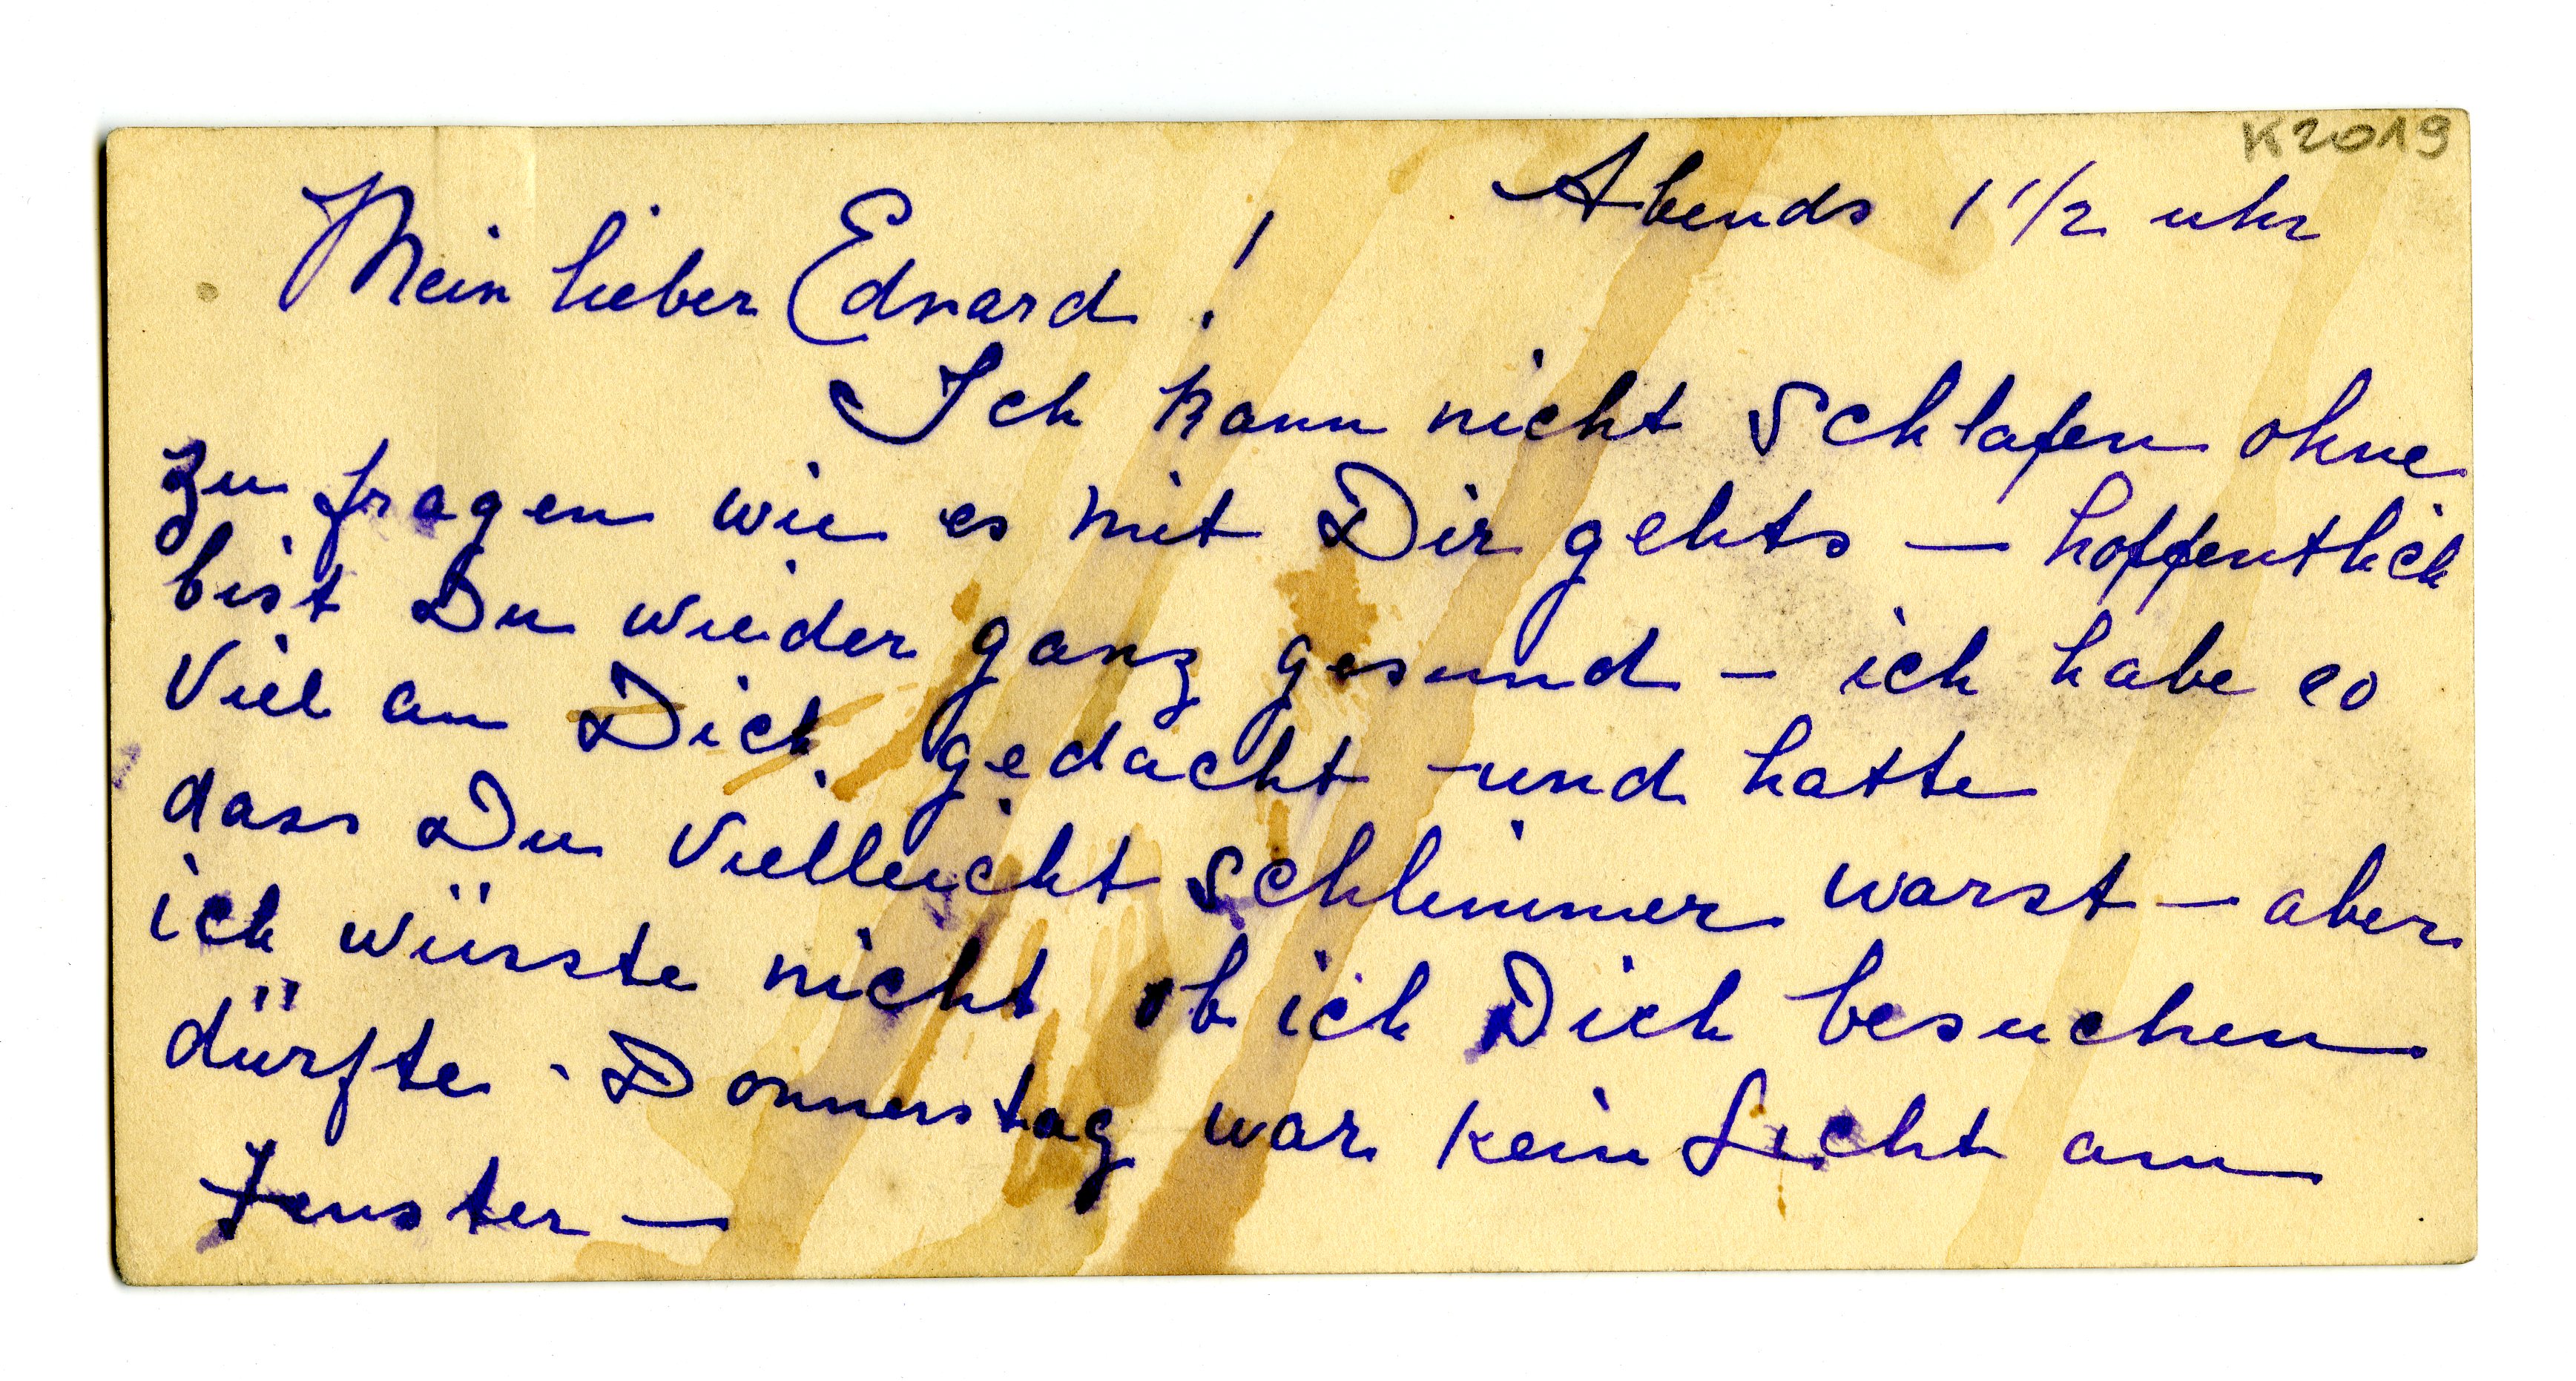 K2019
Abends 1 1/2 uhr
Mein lieber Eduard!
Ich kann nicht schlafen ohne
zu fragen wie es mit Dir gehts — hoffentlich
bist Du wieder ganz gesund — ich habe so
viel an Dich gedacht — und hatte
dass Du vielleicht schlimmer warst — aber
ich wüsste nicht ob ich Dich besuchen
dürfte. Donnerstag war kein Licht am
Fenster —